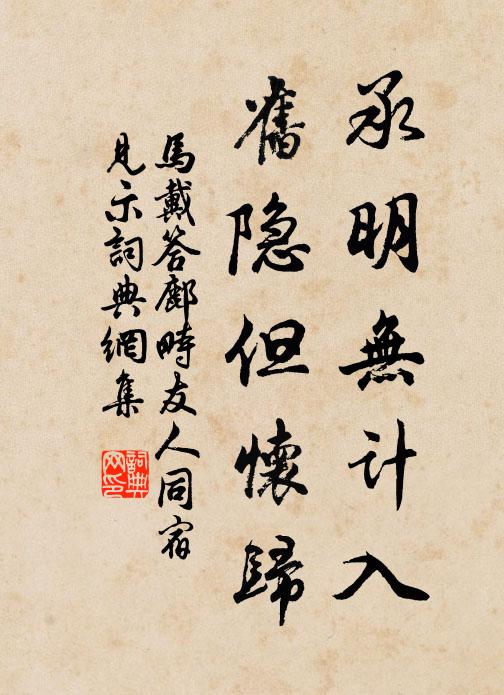 承明無計入
舊隐但懷歸
馬戴答鄜畤友人同宿
見示詞典網集
詞典網印